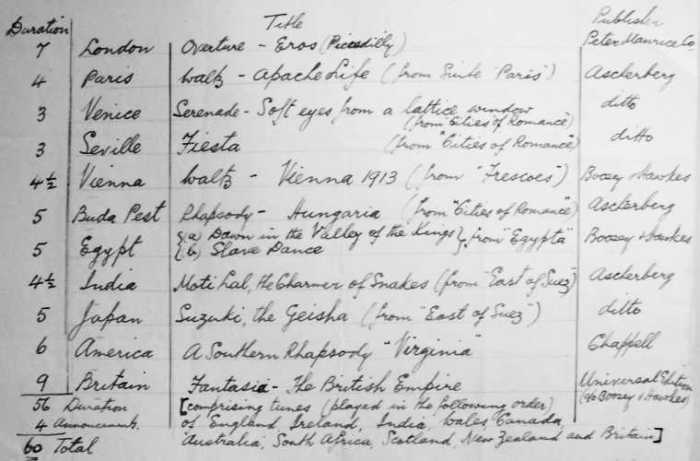 Duration Title Publisher
7 London Overture - Eros (Piccadilly) Peter Maurice Co
4 Paris Waltz - Apache Life (from Suite "Paris") Ascherberg
3 Venice Serenade - Soft eyes from a lattice window (from "Cities of Romance") ditto
3 Seville Fiesta (from "Cities of Romance") ditto
4½ Vienna Waltz - Vienna 1913 (from "Frescoes") Boosey & Hawkes
5 Buda Pest Rhapsody - Hungaria (from "Cities of Romance") Ascherberg
5 Egypt {(a) Dawn in the Valley of the Kings} from "Egypta" Boosey & Hawkes
{(b) Slave Dance
4½ India Moti Lal, the Charmer of Snakes (from "East of Suez") Ascherberg
5 Japan Suzuki, the Geisha (from "East of Suez") ditto
6 America A Southern Rhapsody "Virginia" Chappell
9 Britain Fantasia - The British Empire Universal Edition
56 Duration [comprising tunes (played in the following order) (c/o Boosey & Hawkes)
4 Announcemts. of England, Ireland, India, Wales, Canada,
60 Total Australia, South Africa, Scotland, New Zealand and Britain]